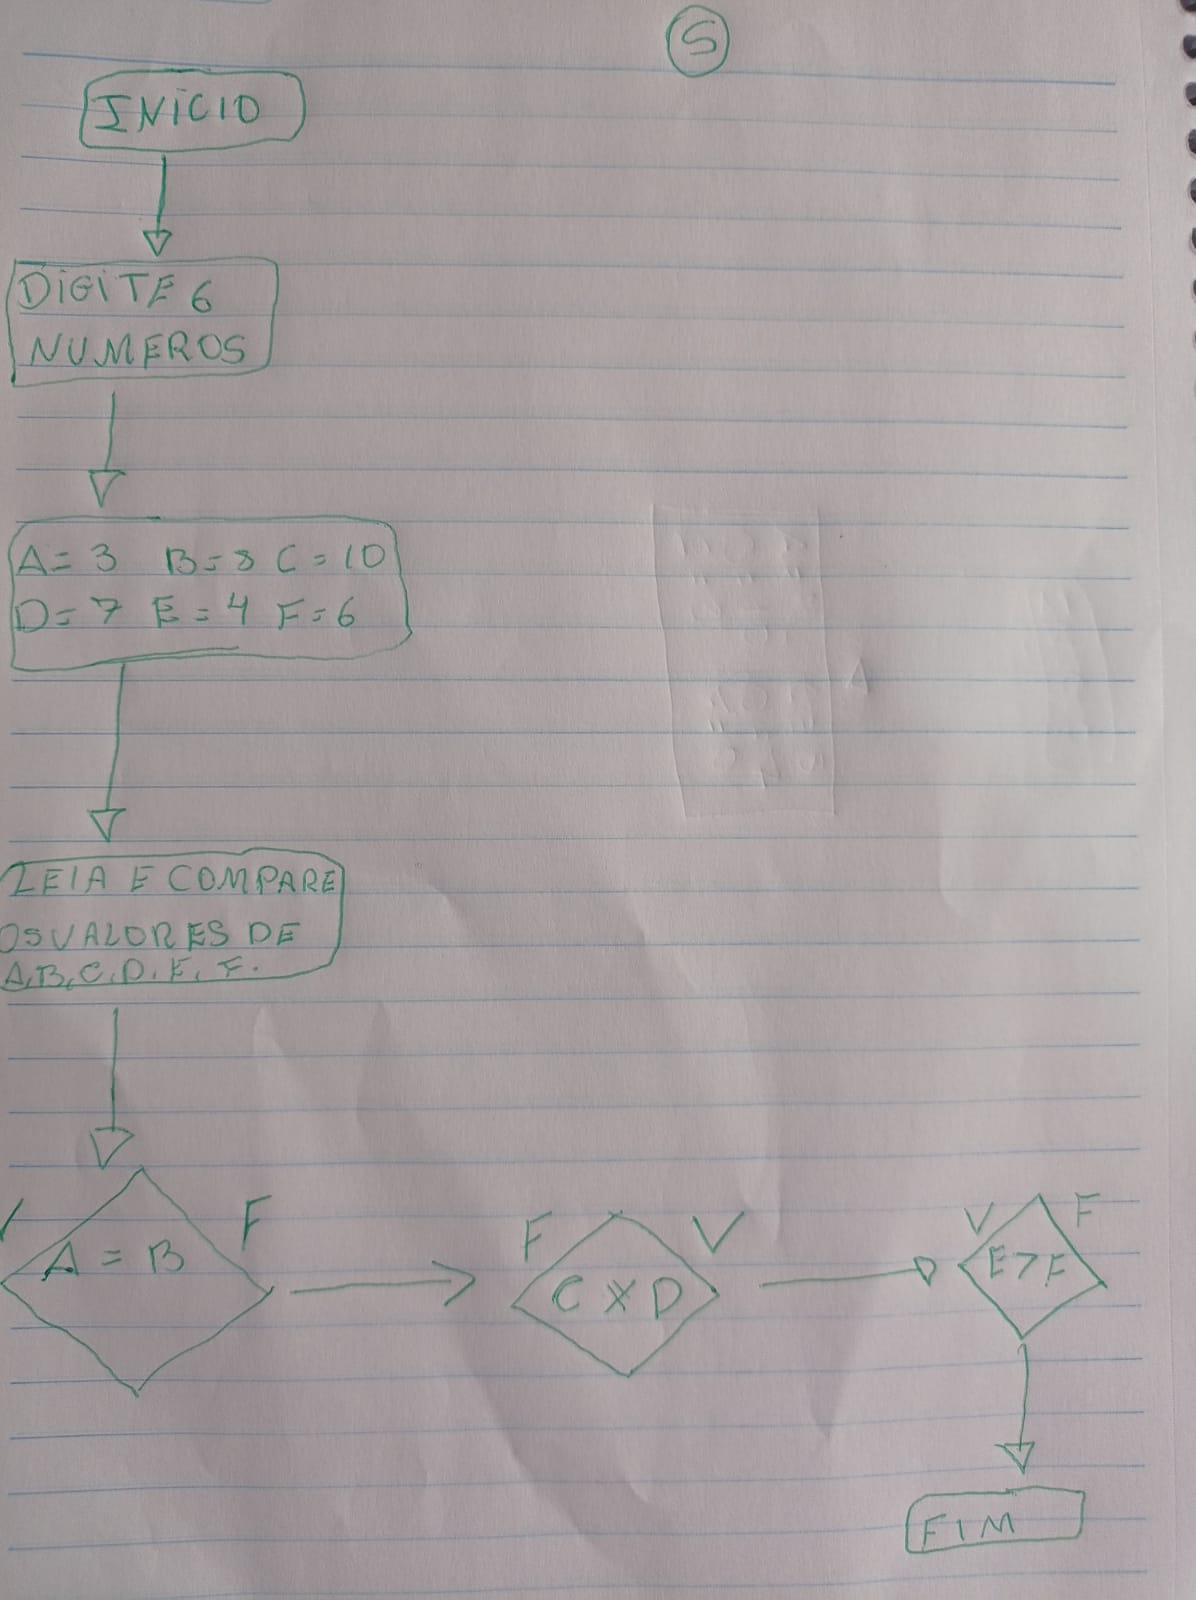 5
INÍCIO
DIGITE 6
NUMEROS
A = 3 B = 8 C = 10
D = 7 E = 4 F = 6
LEIA E COMPARE
OS VALORES DE
A, B, C, D, E, F.
V F
A = B
F V
C X D
V F
E > F
FIM